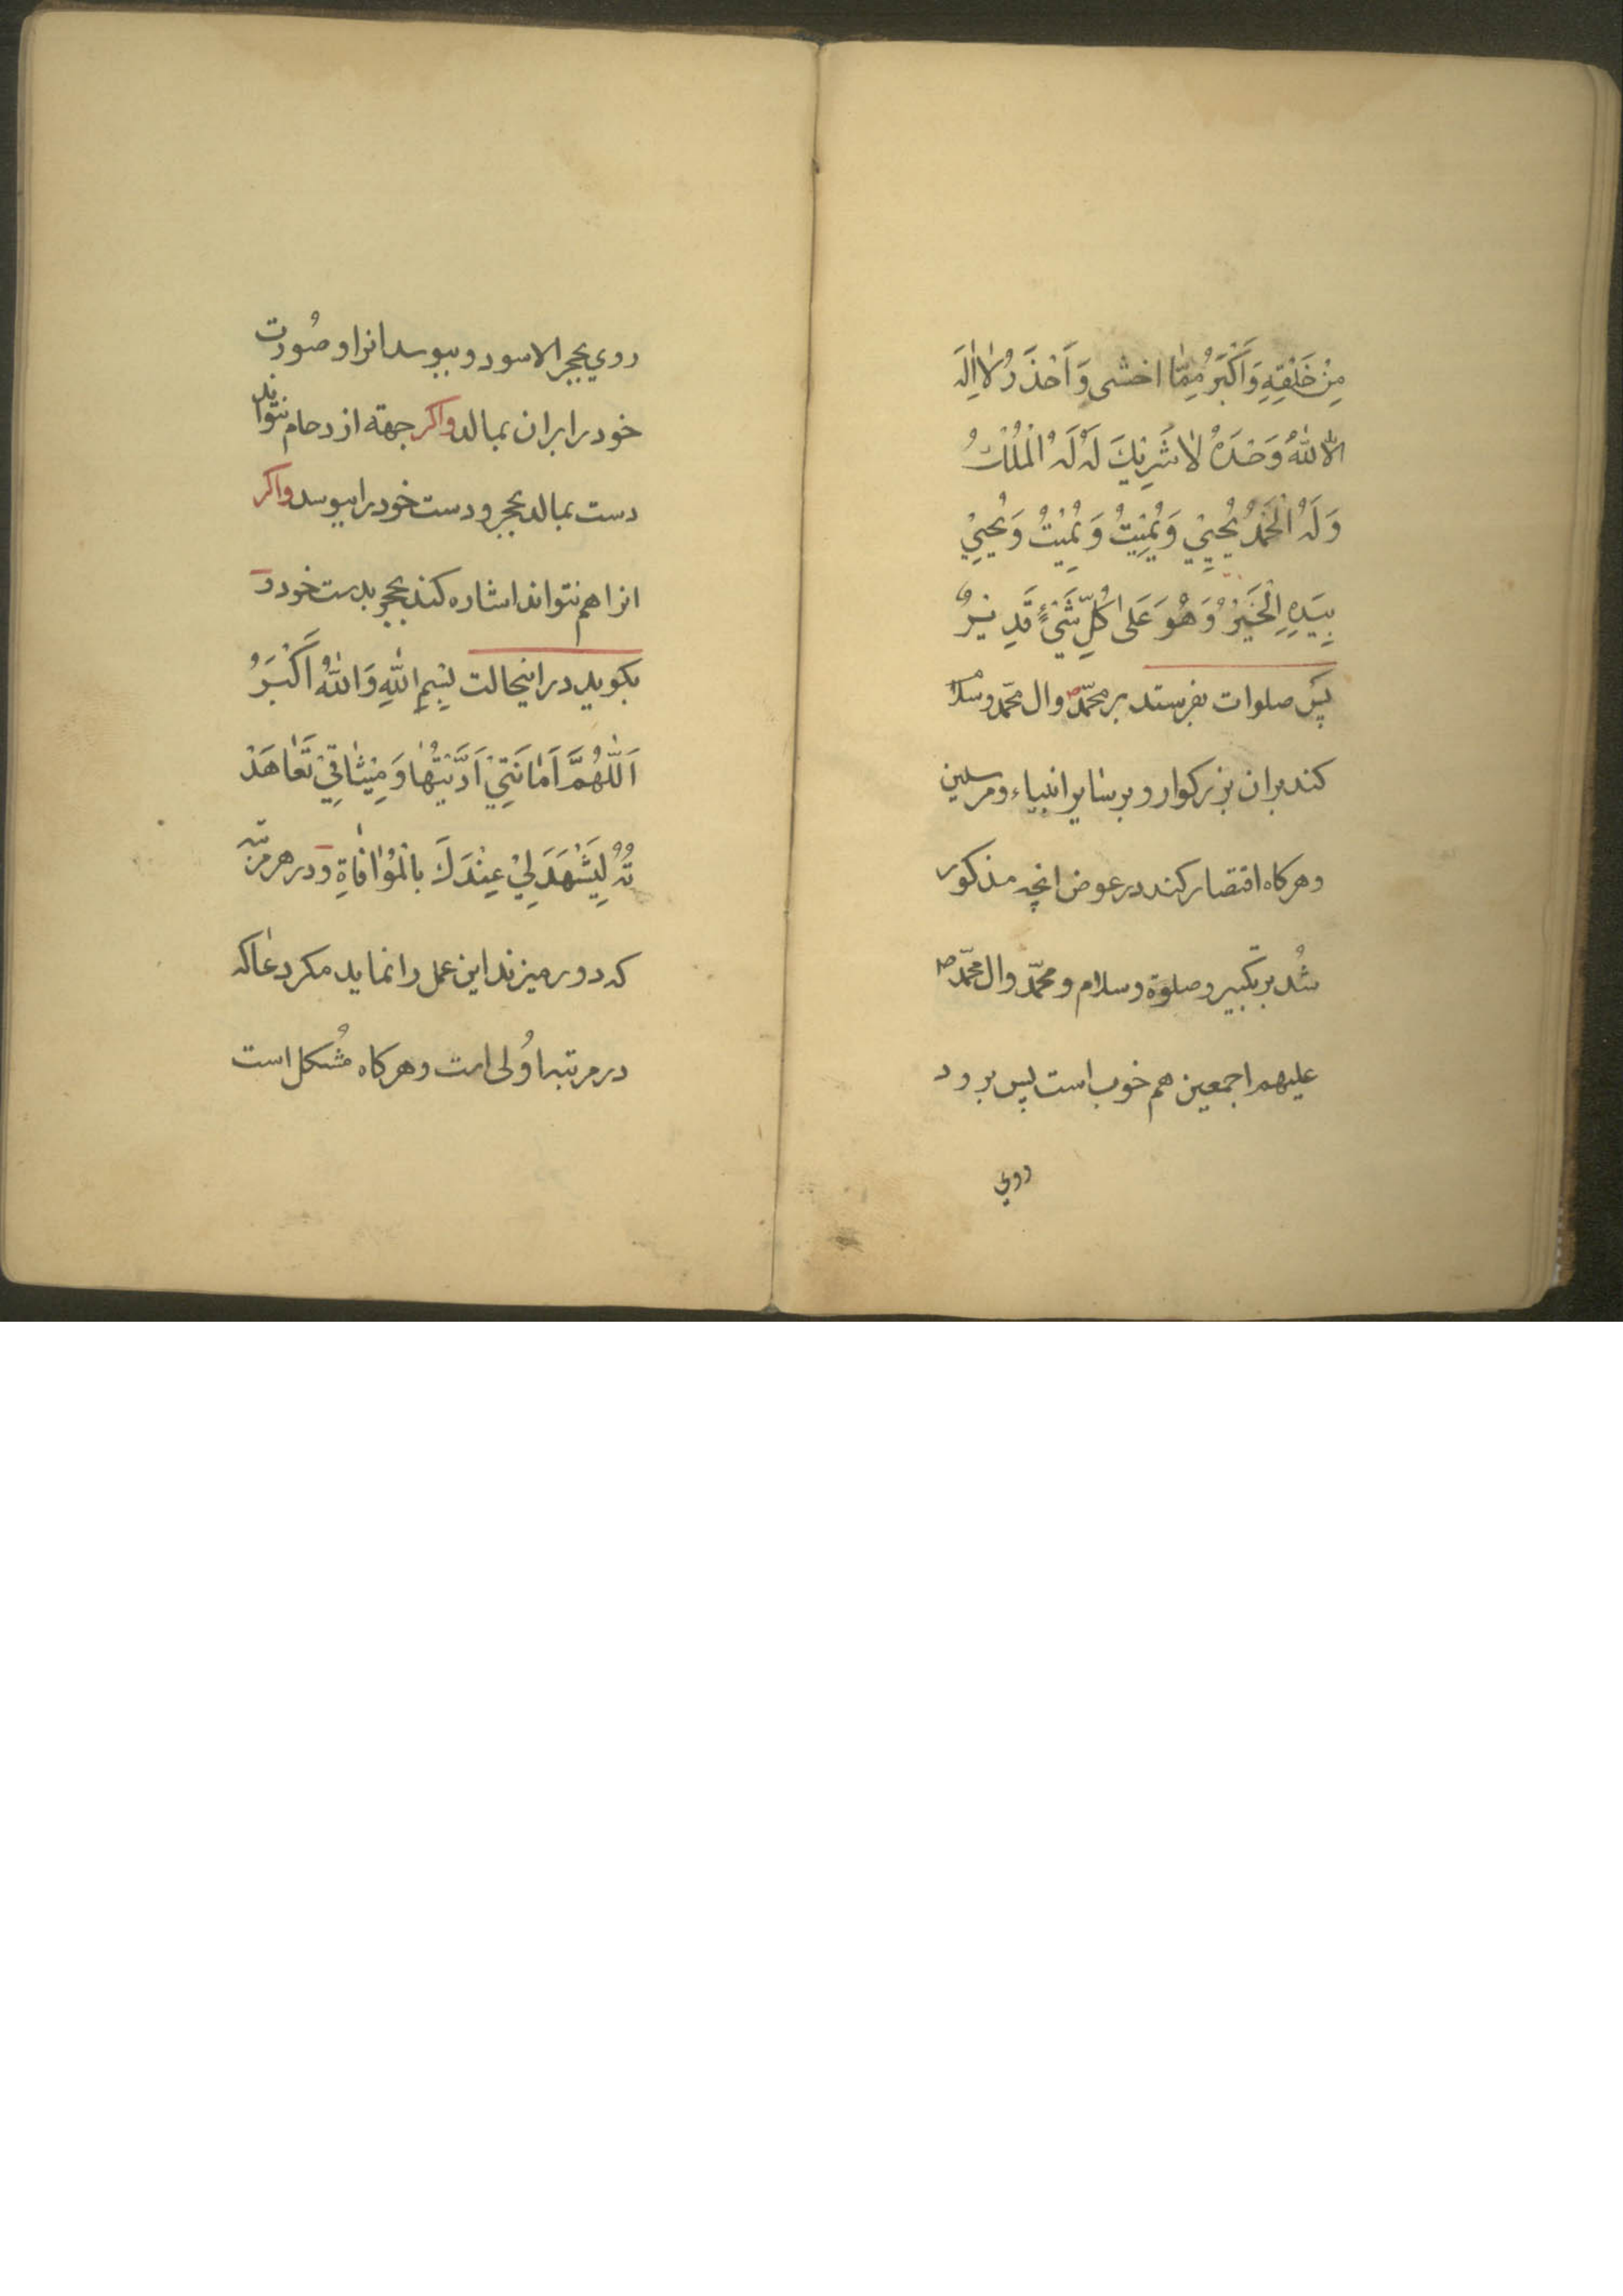 مِنْ خَلْقِهِ وَاَكْبَرُ مِمّٰا اخشی وَاَحْذَرُ لٰا اِلٰهَ
اِلَّا اللّٰهُ وَحْدَهُ لٰا شَرِيْكَ لَهُ لَهُ الْمُلْكُ
وَلَهُ الْحَمْدُ يُحْيِيْ وَيُمِيْتُ وَيُمِيْتُ وَيُحْيِيْ
بِيَدِهِ الْخَيْرُ وَهُوَ عَلٰى كُلِّ شَيْءٍ قَدِيْرٌ
پس صلوات بفرستد بر محمّد ص وال محمّد و سلام
کند بران بزرکوار و بر سٰایر انبیاء و مرسلین
و هرکاه اقتصار کند در عوض انچه مذکور
شُد بر تکبیر و صلوة و سلام و محمّد وال محمّد ص
علیهم اجمعین هم خوب است پس برود
روي
روي بحجر الاسود و ببوسد انرا و صُورت
خود را بران بمالد واکر جهة ازدحام نتواند
دست بمالد بحجر و دست خود را ببوسد واکر
انرا هم نتواند اشاره کند بحجر بدست خود و
بکوید در اینحالت بِسْمِ اللّٰهِ وَاللّٰهُ اَكْبَرُ
اَللّٰهُمَّ اَمٰانَتِيْ اَدَّيْتُهٰا وَمِيْثٰاقِيْ تَعٰاهَدْ
تُهُ لِيَشْهَدَ لِيْ عِنْدَكَ بِالْمُوٰافٰاةِ و در هر مرتبه
که دور میزند این عمل را نماید مکر دعٰا که
در مرتبه اُولی است و هرکاه مُشکل است